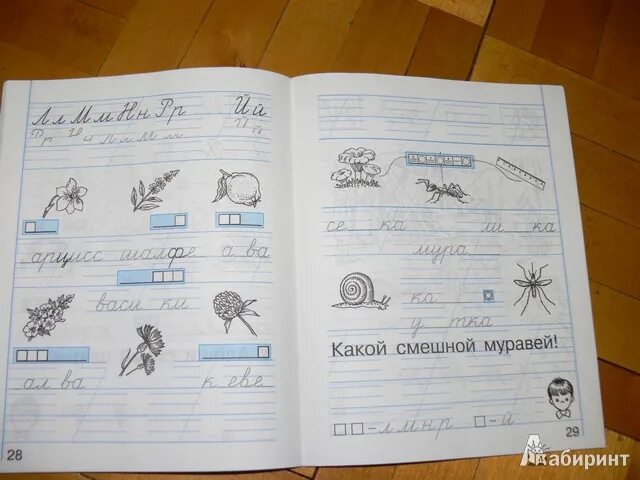 Лл Мм Нн Рр Йй
Рр Нн Лл Мм Йй
арцисс шалфе а ва
васи ки
ал ва к еве
28
се ка ли ка
мура
ко
у тка
Какой смешной муравей!
- л м н р - й
29
Лабиринт